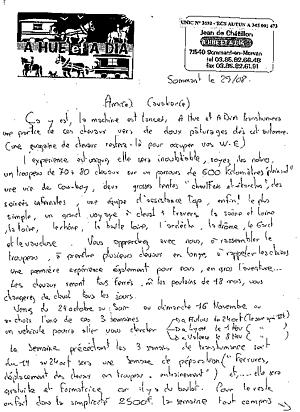 A HUE ET A DIA
UNIC N° 3030 - RCS AUTUN A 345 001 473
Jean de Châtillon
A HUE ET A DIA
71540 Sommant-en-Morvan
tel 03.85.82.68.48
fax 03.85.82.61.91
Sommant le 29/08.
Ami(e) Cavalier(e)
Ca y est, la machine est lancée, A Hue et A Dia transhumera
une partie de ces chevaux vers de doux pâturages dès cet automne.
(une quinzaine de chevaux restera là pour occuper vos W.E)
L'expérience est unique, elle sera inoubliable, soyez les notres,
un troupeau de 70 à 80 chevaux sur un parcours de 600 kilomètres
une vie de Cow-boy, deux grosses tentes "chauffées et étanches", des
soirées cabarets, une équipe d'assistance Top, enfin! le plus
simple, un grand voyage à cheval à travers la saône et Loire
la loire, l'ardèche, la drôme, le Gard
et le vaucluse. Vous apprendrez avec nous, à rassembler le
troupeau, à conduire plusieurs chevaux en longe, à rappeler les chevaux
une première expérience également pour nous, en gros l'aventure...
Les chevaux seront tous ferrés, à les poulains de 18 mois, vous
changerez de cheval tous les jours.
Venez du 24 octobre au soir au dimanche 16 Novembre ou
au choix l'une de ces 3 semaines
un véhicule pourra aller vous chercher
La semaine précédent les 3 semaines de transhumance soit
du 19 au 24 oct sera une semaine de préparation (Ferrures,
déplacement des chevaux en troupeau, entrainement) et.....elle sera
gratuite et formatrice car il y a du boulot. Pour le reste
on fait dans la simplicité 2500F la semaine tout compris